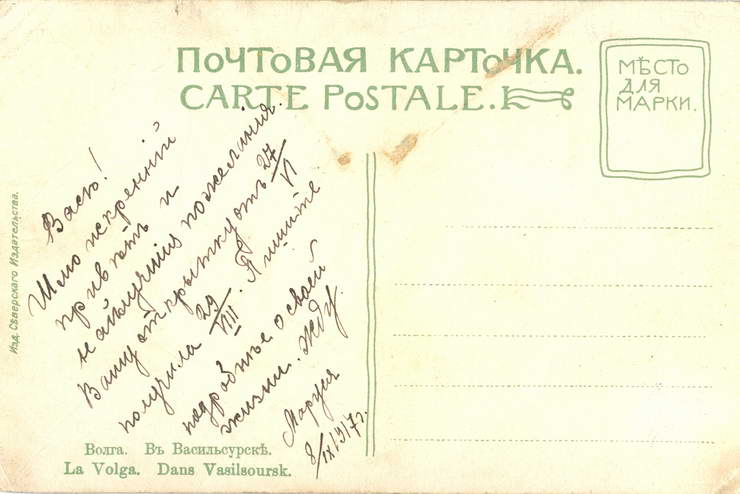 ПОЧТОВАЯ КАРТОЧКА.
CARTE POSTALE.
МѢСТО
ДЛЯ
МАРКИ.
Изд. Сѣверскаго Издательства.
Васю!
Шлю искренній
привѣтъ и
наилучшія пожеланія.
Вашу открытку отъ 27/VI
получила 29/VIII. Пишите
подробнѣе о своей
жизни. Жду
Маруся
8/IX 1917 г.
Волга. Въ Васильсурскѣ.
La Volga. Dans Vasilsoursk.